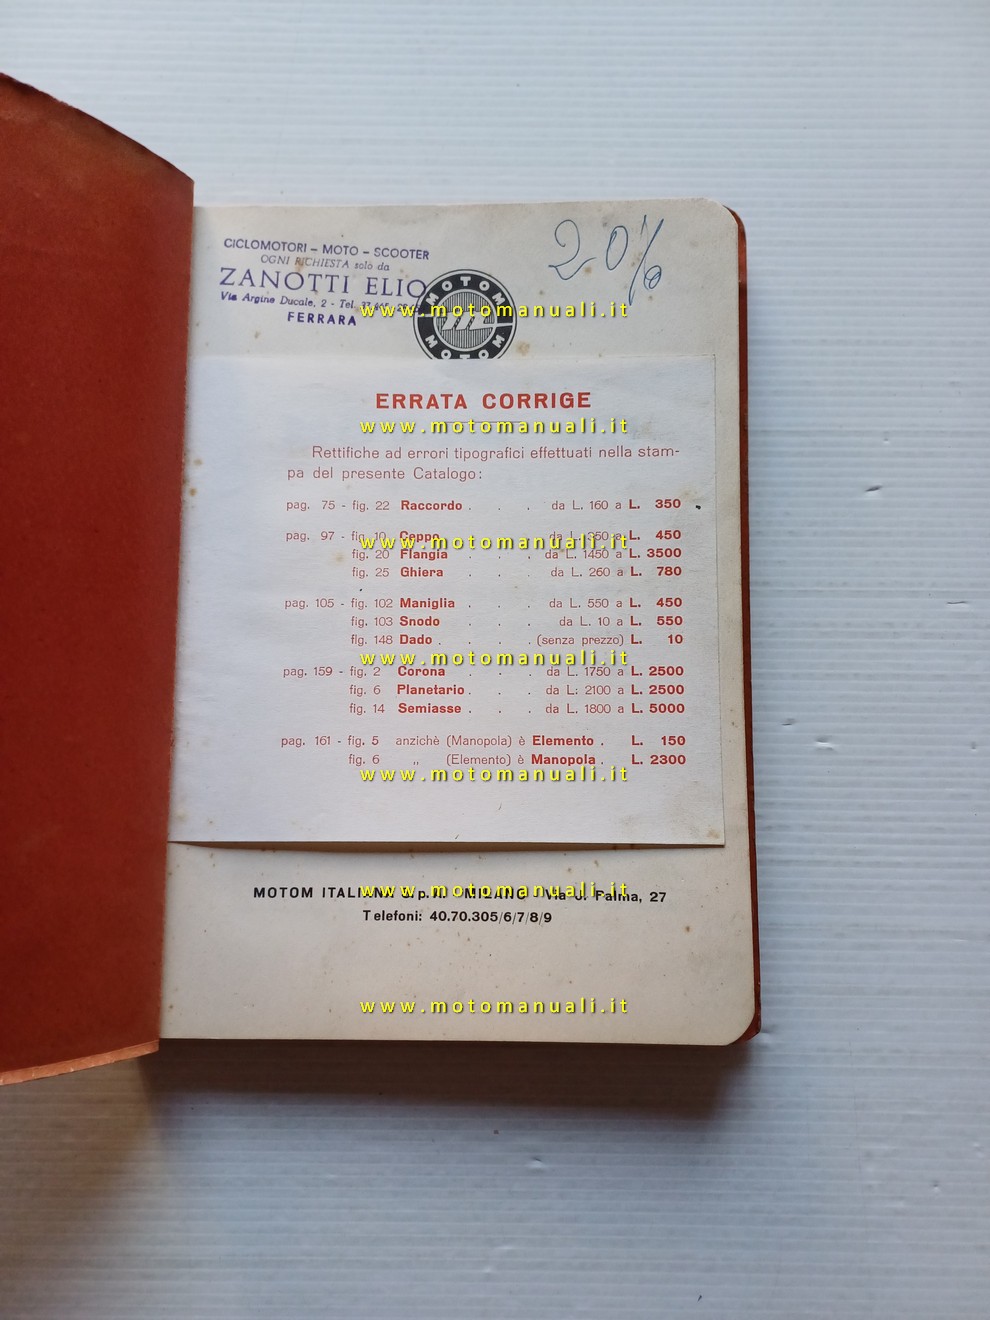 CICLOMOTORI – MOTO – SCOOTER
OGNI RICHIESTA solo da
ZANOTTI ELIO
Via Argine Ducale, 2 - Tel.
FERRARA
20%
MOTOM
MOTOM
www.motomanuali.it
ERRATA CORRIGE
www.motomanuali.it
Rettifiche ad errori tipografici effettuati nella stam-
pa del presente Catalogo:
pag. 75 - fig. 22 Raccordo . . . da L. 160 a L. 350
pag. 97 - fig. 10 Ceppo da L. 350 a L. 450
www.motomanuali.it
fig. 20 Flangia . . . da L. 1450 a L. 3500
fig. 25 Ghiera . . . da L. 260 a L. 780
pag. 105 - fig. 102 Maniglia . . . da L. 550 a L. 450
fig. 103 Snodo . . . da L. 10 a L. 550
fig. 148 Dado . . . . (senza prezzo) L. 10
www.motomanuali.it
pag. 159 - fig. 2 Corona . . . da L. 1750 a L. 2500
fig. 6 Planetario . . . da L: 2100 a L. 2500
fig. 14 Semiasse . . . da L. 1800 a L. 5000
pag. 161 - fig. 5 anzichè (Manopola) è Elemento . L. 150
fig. 6 „ (Elemento) è Manopola . L. 2300
www.motomanuali.it
MOTOM ITALIANA S.p.A. - MILANO - Via G. Palma, 27
www.motomanuali.it
Telefoni: 40.70.305/6/7/8/9
www.motomanuali.it